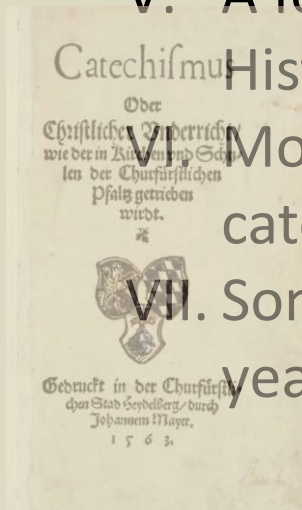 V. A
Hist
VI. Mo
cate
VII. Son
yea
Catechiſmus
Oder
Chriſtlicher Vnderricht/
wie der in Kirchen vnd Schu-
len der Churfürſtlichen
Pfaltz getrieben
wirdt.
Gedruckt in der Churfürſtli-
chen Stad Heydelberg/durch
Johannem Mayer.
1563.